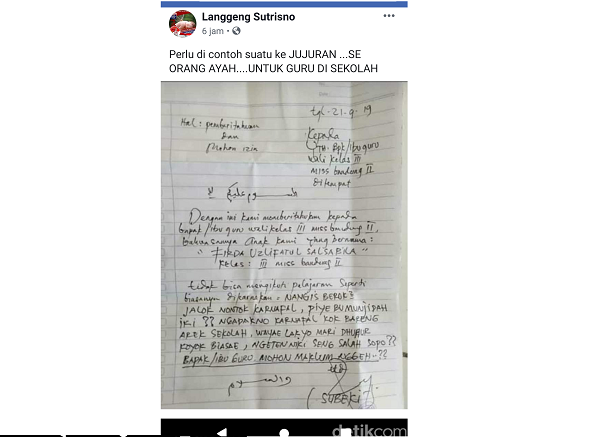 Langgeng Sutrisno
6 jam
Perlu di contoh suatu ke JUJURAN ...SE
ORANG AYAH....UNTUK GURU DI SEKOLAH
tgl-21-9-19
Hal: pemberitahuan
dan
Mohon izin
Kepada
YTH. Bpk/Ibu guru
Wali kelas III
MISS bandung II
Ditempat
Dengan ini kami memberitahukan kepada
bapak/ibu guru walikelas III miss bandung II,
bahwasanya anak kami yang bernama:
" FIKDA UZLIFATUL SALSABILA "
Kelas: III miss bandung II
tidak bisa mengikuti pelajaran seperti
biasanya dikarnakan, NANGIS BEROK2
JALOK NONTOK KARNAFAL, PIYE BU MUNJIDAH
IKI ?? NGADAKNO KARNAFAL KOK BARENG
AREK SEKOLAH, WAYAE LAK YO MARI DHUHUR
KOYOK BIASAE, NGETEN NIKI SENG SALAH SOPO??
BAPAK/IBU GURU MOHON MAKLUM NGGEH..??
(SUBEKI)
detikcom